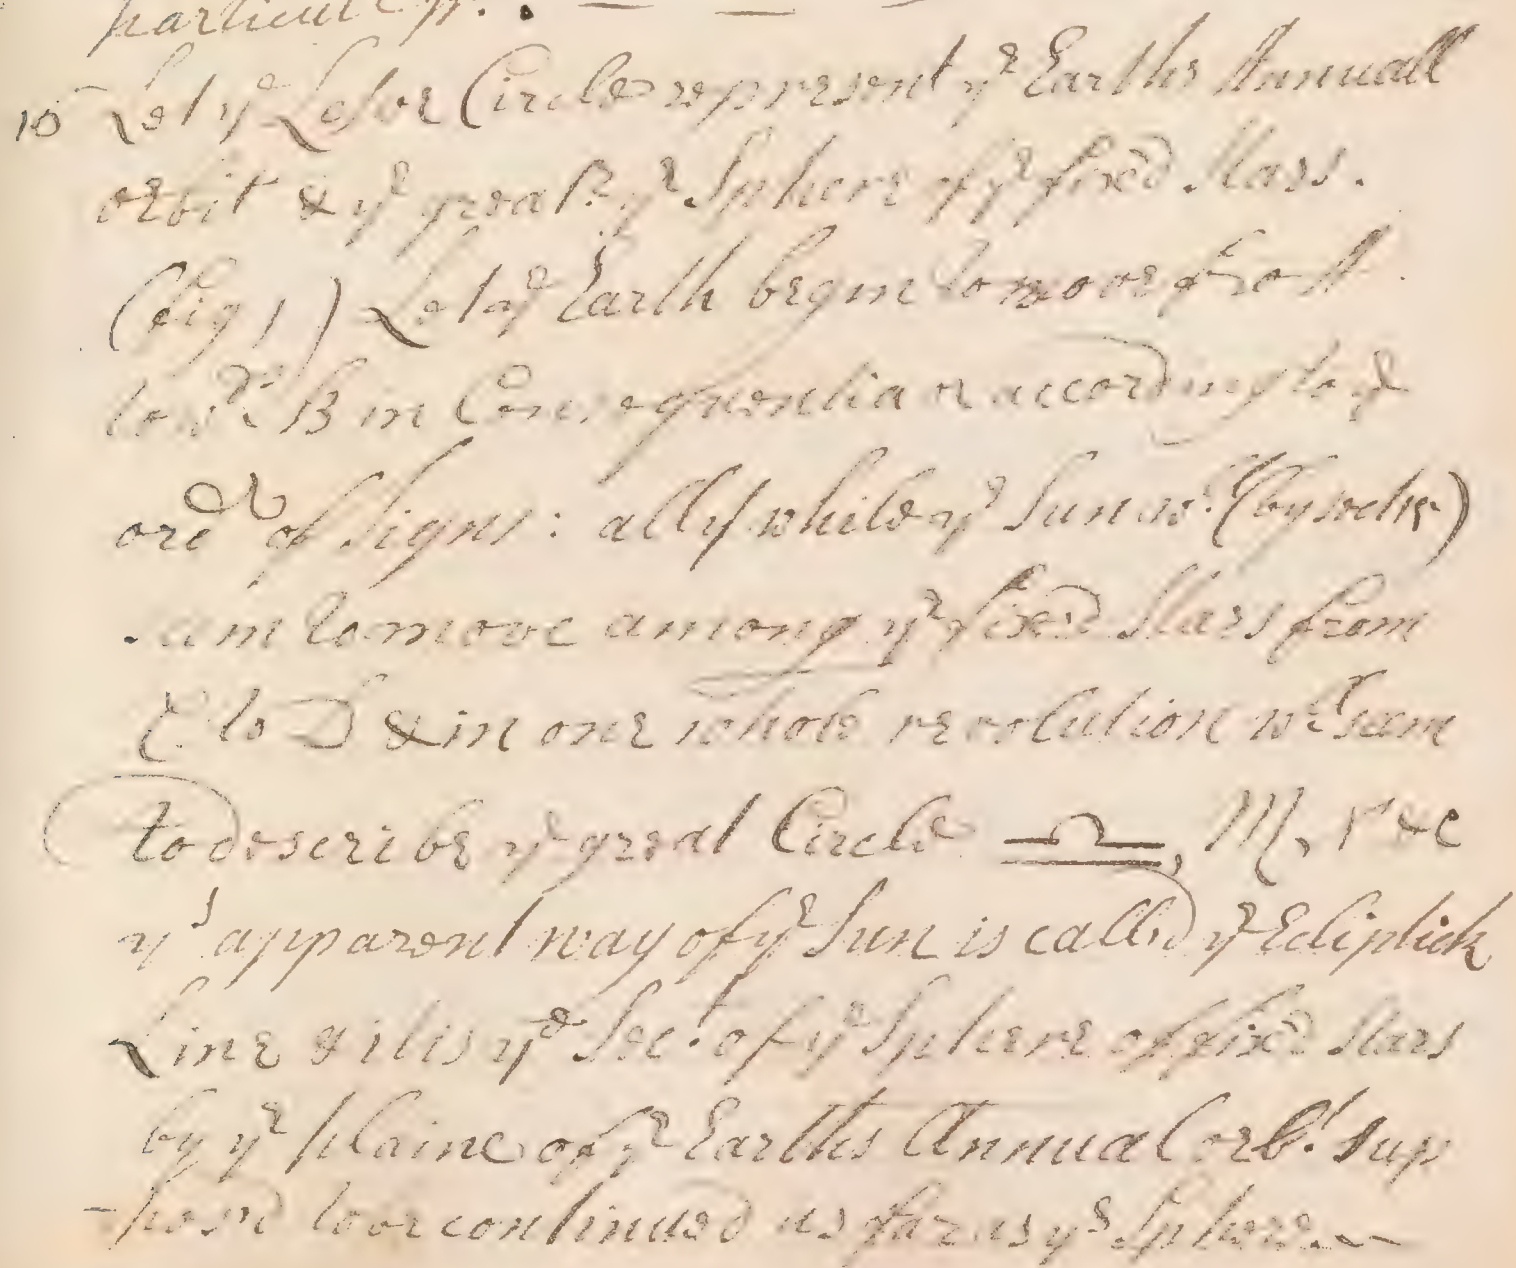 particul
10 Let yᵉ Lesser Circle represent yᵉ Earths Annuall
orbit & yᵉ greatʳ yᵉ Sphere of yᵉ fixed Stars.
(fig 1) Let yᵉ Earth begin to moove fro A
towᵈˢ B in Consequentia or according to yᵉ
ordʳ of Signs: all yᵉ while yᵉ Sun wᶜ
to moove among yᵉ fixed Stars from
C to D & in one whole revolution wᶜ seem
to describe yᵉ great Circle ♎, ♏, ♐ &c
yˢ apparent way of yᵉ Sun is called yᵉ Ecliptick
Line & it is yᵉ Secᵗ of yᵉ Sphere of fixed Stars
by yᵉ plaine of yᵉ Earths Annual orbᵗ sup
-posed to be continued as far as yᵉ Sphere